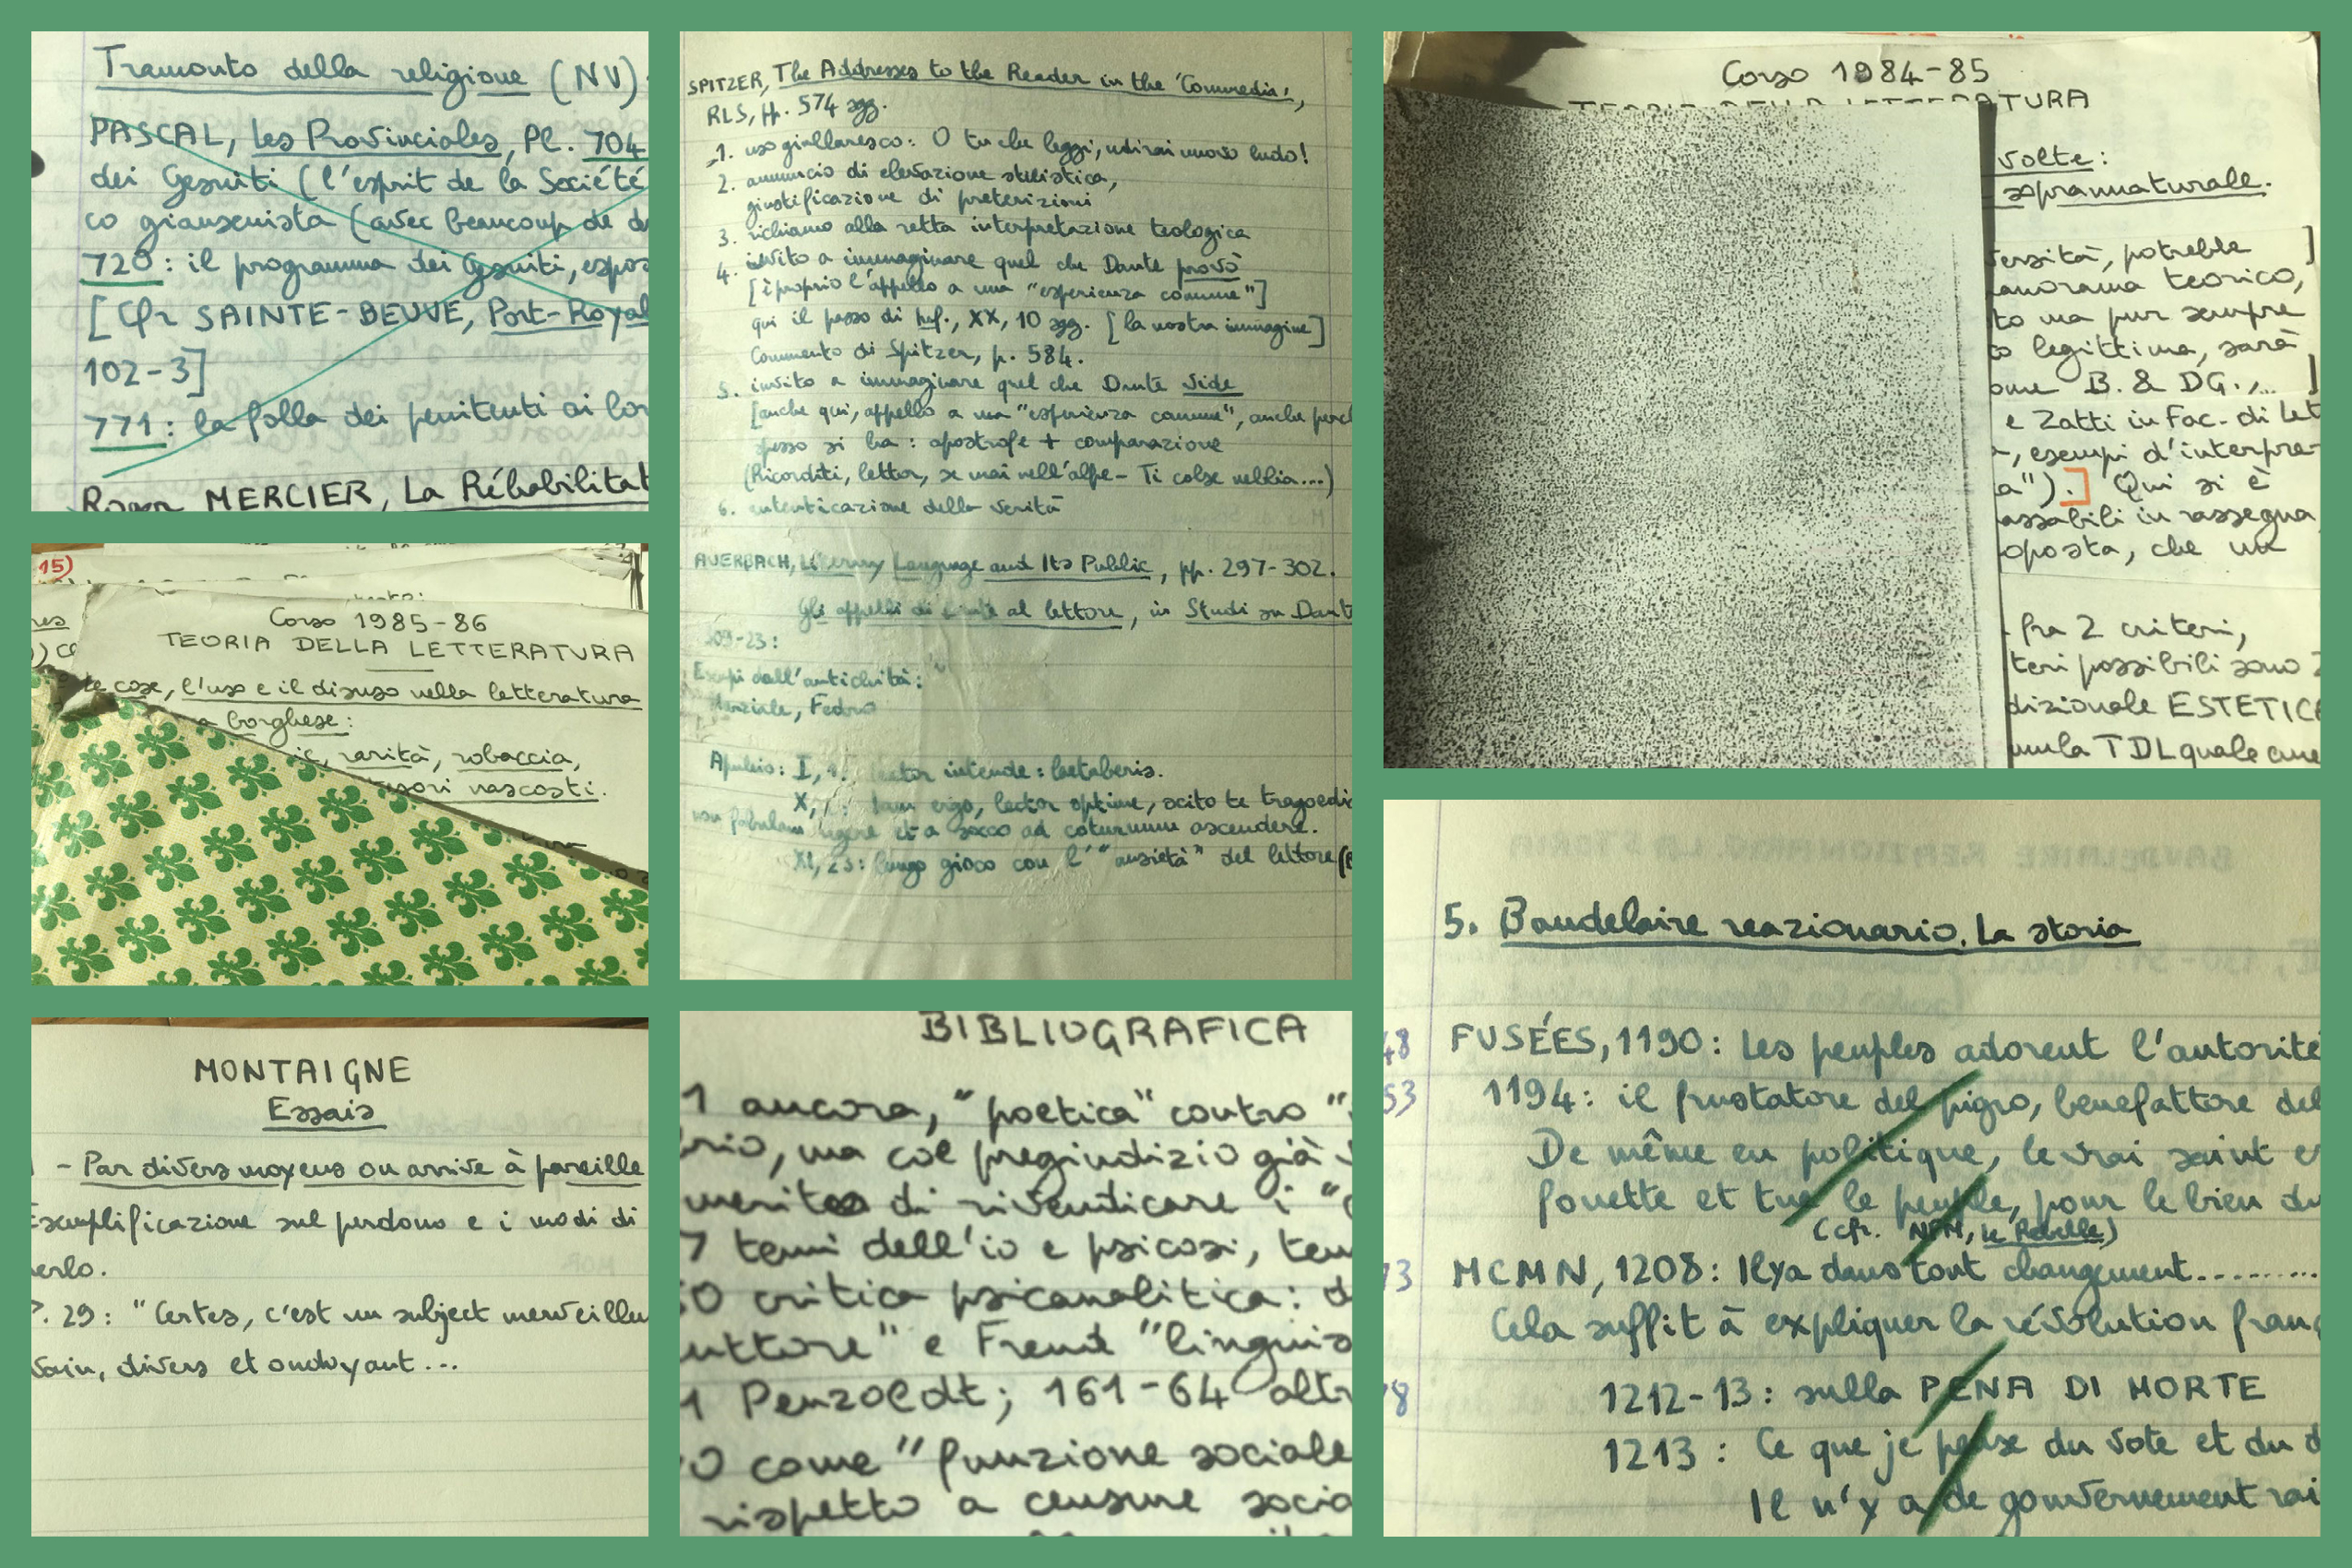 Tramonto della religione (NV)
PASCAL, Les Provinciales, Pl. 704
dei Gesuiti (l'esprit de la Société
co giansenista (avec beaucoup de d
720: il programma dei Gesuiti, espos
[Cfr SAINTE-BEUVE, Port-Royal
102-3]
771: la folla dei penitenti ai
Roger MERCIER, La Réhabilitat
15)
Corso 1985-86
TEORIA DELLA LETTERATURA
te cose, l'uso e il disuso nella letteratura
borghese:
rarità, robaccia,
sori nascosti.
MONTAIGNE
Essais
- Par divers moyens on arrive à pareille
Esemplificazione sul perdono e i modi di
erlo.
P. 29: "Certes, c'est un subject merveilleu
vain, divers et ondoyant...
SPITZER, The Addresses to the Reader in the 'Commedia',
RLS, pp. 574 sgg.
1. uso giullaresco: O tu che leggi, udirai nuovo ludo!
2. annuncio di elevazione stilistica,
giustificazione di preterizioni
3. richiamo alla retta interpretazione teologica
4. invito a immaginare quel che Dante provò
[è proprio l'appello a una "esperienza comune"]
qui il passo di Inf., XX, 10 sgg. [la nostra immagine]
Commento di Spitzer, p. 584.
5. invito a immaginare quel che Dante vide
[anche qui, appello a una "esperienza comune", anche perch
spesso si ha: apostrofe + comparazione
(Ricorditi, lettor, se mai nell'alpe - Ti colse nebbia...)
6. autenticazione della verità
AUERBACH, Literary Language and Its Public, pp. 297-302.
Gli appelli di Dante al lettore, in Studi su Dant
309-23:
Esempi dall'antichità:
Marziale, Fedro
Apuleio: I, 1: lector intende: laetaberis.
X, 2: iam ergo, lector optime, scito te tragoedia
non fabulam legere et a socco ad coturnum ascendere.
XI, 23: lungo gioco con l'"ansietà" del lettore
BIBLIOGRAFICA
1 ancora, "poetica" contro "
rio, ma col pregiudizio già
merito di rivendicare i "
7 temi dell'io e psicosi, tem
0 critica psicanalitica: d
uttore" e Freud "linguis
1 Penzoldt; 161-64 altr
0 come "funzione sociale
rispetto a censure socia
Corso 1984-85
TEORIA DELLA LETTERATURA
volte:
soprannaturale.
versità, potrebbe ]
anorama teorico,
to ma pur sempre
co legittima, sarà
ome B. & DG.,... ]
e Zatti in Fac. di Let
, esempi d'interpre-
a").] Qui si è
assabili in rassegna
oposta, che un
fra 2 criteri,
teri possibili sono 2
dizionale ESTETICA
nula TDL quale
5. Baudelaire reazionario. La storia
48 FUSÉES, 1190: Les peuples adorent l'autorité
53 1194: il frustatore del pigro, benefattore del
De même en politique, le vrai saint e
fouette et tue le peuple, pour le bien du
(cfr. NFM, Le Rebelle)
73 MCMN, 1208: Il y a dans tout changement.........
Cela suffit à expliquer la révolution franç
78 1212-13: sulla PENA DI MORTE
1213: Ce que je pense du vote et du d
Il n'y a de gouvernement rai